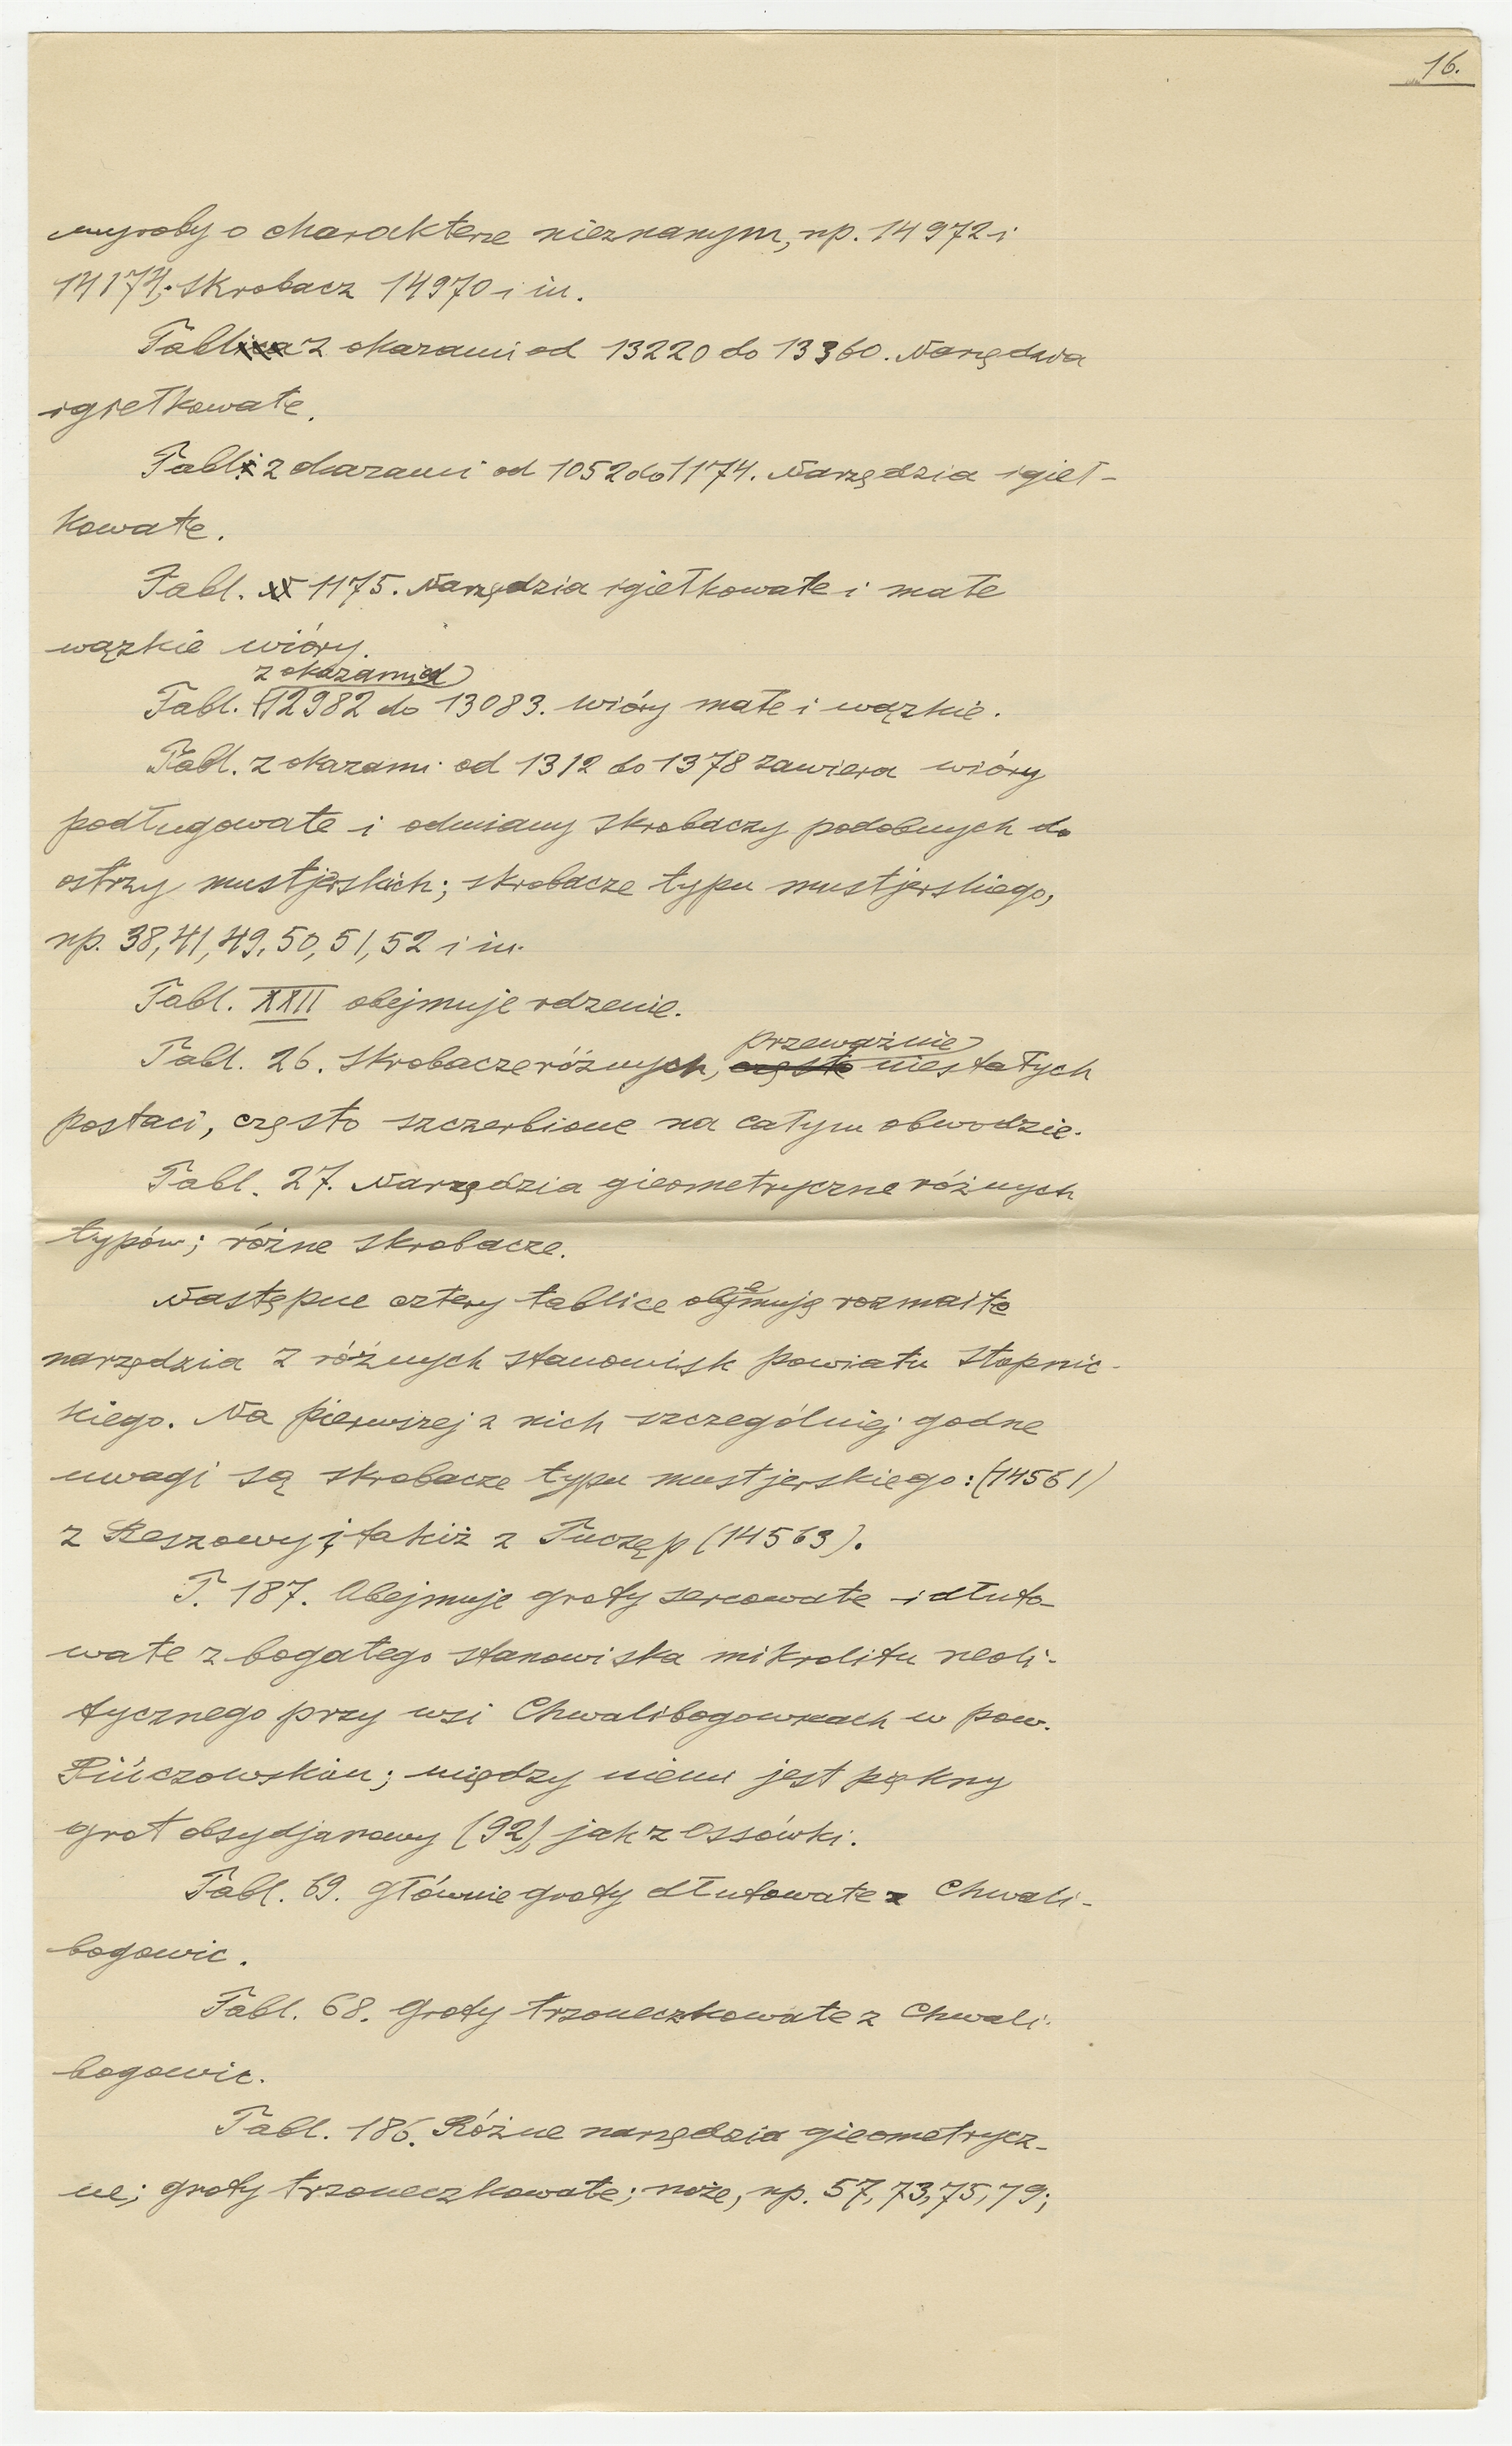 16.
wyroby o charakterze nieznanym, np. 14972 i
14174; skrobacz 14970 i in.
Tabl z okazami od 13220 do 13360. Narzędzia
igiełkowate.
Tabl z okazami od 1052 do 1174. Narzędzia igieł-
kowate.
Tabl. 1175. Narzędzia igiełkowate i małe
wązkie wióry.
z okazami od
Tabl. 12982 do 13083. Wióry małe i wązkie.
Tabl. z okazami od 1312 do 1378 zawiera wióry
podługowate i odmiany skrobaczy podobnych do
ostrzy mustjerskich; skrobacze typu mustjerskiego,
np. 38, 41, 49, 50, 51, 52 i in.
Tabl. XXII obejmuje rdzenie.
przeważnie
Tabl. 26. Skrobacze różnych, często niestałych
postaci, często szczerbione na całym obwodzie.
Tabl. 27. Narzędzia gieometryczne różnych
typów; różne skrobacze.
Następne cztery tablice obejmują rozmaite
narzędzia z różnych stanowisk powiatu Stopnic-
kiego. Na pierwszej z nich szczególniej godne
uwagi są skrobacze typu mustjerskiego: (14561)
z Beszowy i takiż z Tuczęp (14563).
T. 187. Obejmuje groty sercowate i dłuto-
wate z bogatego stanowiska mikrolitu neoli-
tycznego przy wsi Chwalibogowicach w pow.
Pińczowskim; między niemi jest piękny
grot obsydjanowy (92), jak z Ossówki.
Tabl. 69. Głównie groty dłutowate z Chwali-
bogowic.
Tabl. 68. Groty trzoneczkowate z Chwali-
bogowic.
Tabl. 186. Różne narzędzia gieometrycz-
ne; groty trzoneczkowate; noże, np. 57, 73, 75, 79;